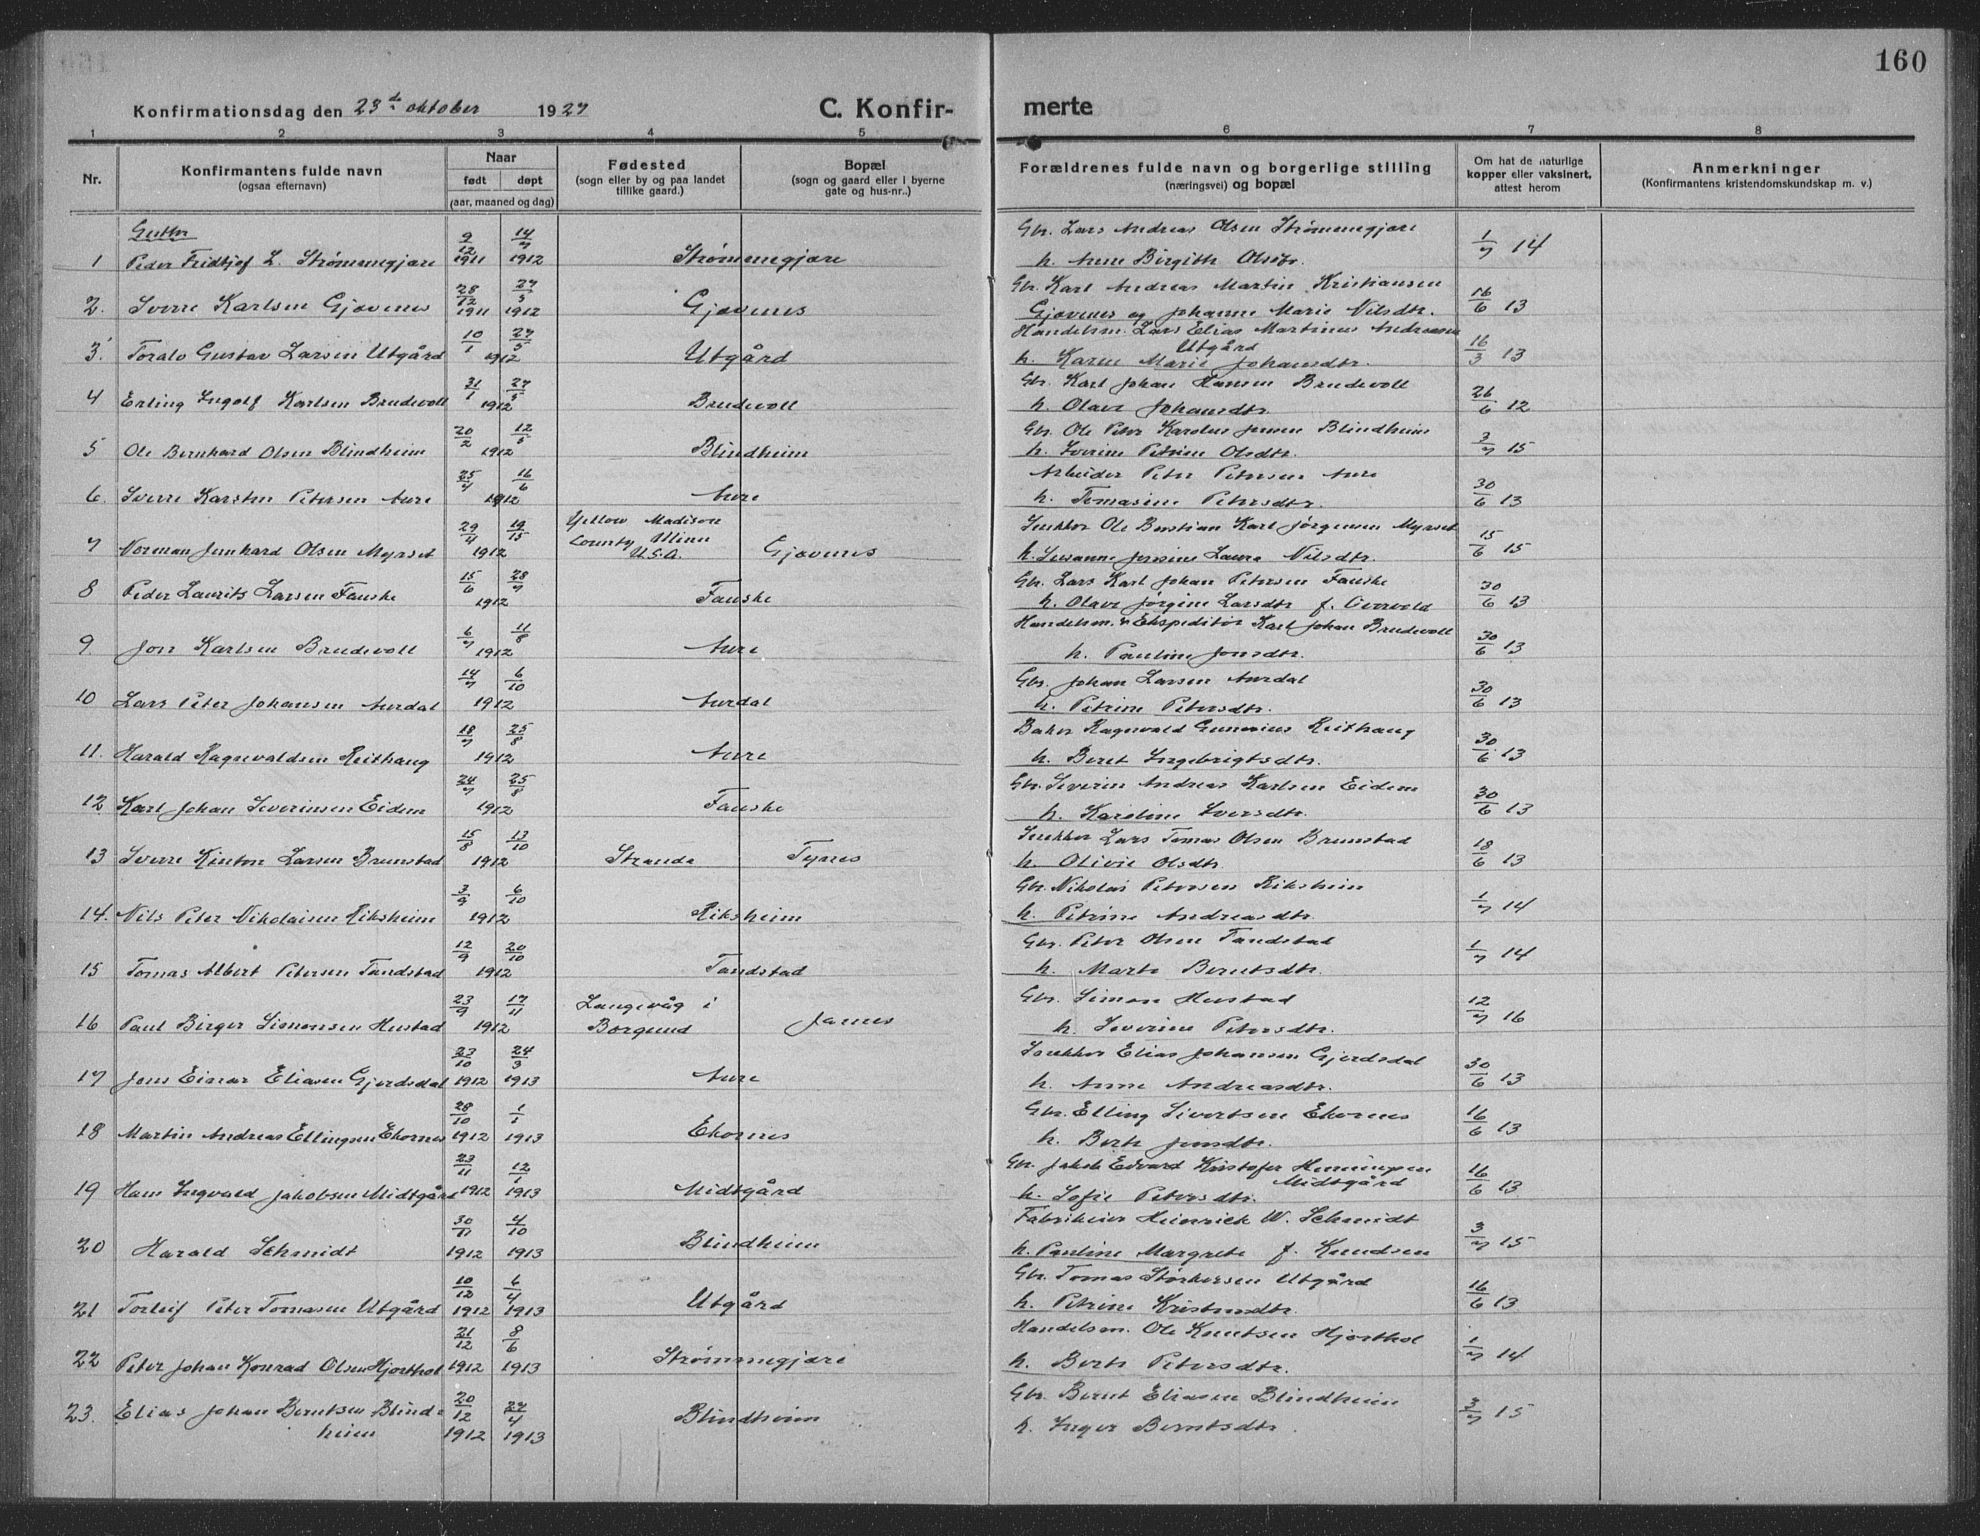 160
Konfirmationsdag den 23d oktober 1927 C. Konfir- merte
1 2 3 4 5 6 7 8
Nr. Konfirmantens fulde navn (ogsaa efternavn) Naar født døpt (aar, maaned og dag) Fødested (sogn eller by og paa landet tillike gaard.) Bopæl (sogn og gaard eller i byerne gate og hus-nr..) Forældrenes fulde navn og borgerlige stilling (næringsvei) og bopæl Om hat de naturlige kopper eller vaksinert, attest herom Anmerkninger (Konfirmantens kristendomskundskap m. v.)
Gutter
1 Peder Fridtjof L. Strømmegjære 9/12 1911 14/7 1912 Strømmegjære Gbr. Lars Andreas Olsen Strømmegjære
h. Anne Birgitte Olsdtr. 1/7 14
2. Sverre Karlsen Gjævenes 28/12 1911 27/5 1912 Gjævenes Gbr. Karl Andreas Martin Kristiansen
Gjævenes og Johanne Marie Nilsdtr. 16/6 13
3. Toralv Gustav Larsen Utgård 10/1 27/5 1912 Utgård Handelsm. Lars Elias Martinus Andreasen
Utgård
h. Karen Marie Johansdtr. 16/3 13
4 Erling Ingolf Karlsen Brudevoll 31/1 27/5 1912 Brudevoll Gbr. Karl Johan Hansen Brudevoll
h. Olave Johansdtr. 26/6 12
5 Ole Bernhard Olsen Blindheim 20/2 12/5 1912 Blindheim Gbr. Ole Peter Karolus Jensen Blindheim
h. Iverine Petrine Olsdtr. 3/7 15
6. Sverre Karsten Petersen Aure 25/4 16/6 1912 Aure Arbeider Peter Petersen Aure
h. Tomasine Petersdtr. 30/6 13
7 Norman Jenhard Olsen Myrset 29/4 19/15 1912 Yellow Madison
County Minn
U.S.A. Gjævenes Snekker Ole Bastian Karl Jørgensen Myrset
h. Susanne Jensine Laura Nilsdtr. 15/6 15
8 Peder Laurits Larsen Fauske 15/6 28/7 1912 Fauske Gbr. Lars Karl Johan Petersen Fauske
h. Olave Jørgine Larsdtr f. Overvold 30/6 13
9. Jon Karlsen Brudevoll 6/7 11/8 1912 Aure Handelsm. & Ekspeditør Karl Johan Brudevoll
h. Pauline Jonsdtr. 30/6 13
10 Lars Peter Johansen Aurdal 14/7 6/10 1912 Aurdal Gbr. Johan Larsen Aurdal
h. Petrine Petersdtr. 30/6 13
11. Harald Ragnvaldsen Reithaug 18/7 25/8 1912 Aure Baker Ragnvald Gunerius Reithaug
h. Beret Ingebrigtsdtr. 30/6 13
12 Karl Johan Severinsen Eidem 24/7 25/8 1912 Fauske Gbr. Severin Andreas Karlsen Eidem
h. Karoline Iversdtr. 30/6 13
13 Sverre Kinton Larsen Brunstad 15/8 13/10 1912 Stranda Tynes Snekker Lars Tomas Olsen Brunstad
h. Olivie Olsdtr. 18/6 13
14. Nils Peter Nikolaisen Riksheim 3/9 6/10 1912 Riksheim Gbr. Nikolai Petersen Riksheim
h. Petrine Andreasdtr. 1/7 14
15 Tomas Albert Petersen Tandstad 12/9 20/10 1912 Tandstad Gbr. Peter Olsen Tandstad
h. Marte Berntsdtr. 1/7 14
16 Paul Birger Simonsen Hustad 23/9 17/11 1912 Langevåg i
Borgund Jarnes Gbr. Simon Hustad
h. Severine Petersdtr. 12/7 16
17 Jens Einar Eliasen Gjerdsdal 23/10 1912 24/3 1913 Aure Snekker Elias Johansen Gjerdsdal
h. Anne Andreasdtr. 30/6 13
18 Martin Andreas Ellingsen Ekornes 28/10 1912 1/1 1913 Ekornes Gbr. Elling Sivertsen Ekornes
h. Berte Jensdtr. 16/6 13
19 Hans Ingvald Jakobsen Midtgård 23/11 1912 12/1 1913 Midtgård Gbr. Jakob Edvard Kristofer Henningsen
Midtgård
h. Sofie Petersdtr. 16/6 13
20 Harald Schmidt 30/11 1912 4/10 1913 Blindheim Fabrikeier Heinrick W. Schmidt
h. Pauline Margrete f. Knudsen 3/7 15
21 Torleif Peter Tomasen Utgård 10/12 1912 6/4 1913 Utgård Gbr. Tomas Størkersen Utgård
h. Petrine Knutsdtr. 16/6 13
22 Peter Johan Konrad Olsen Hjorthol 21/12 1912 8/6 1913 Strømmegjære Handelsm. Ole Knutsen Hjorthol
h. Berte Petersdtr. 1/7 14
23. Elias Johan Berntsen Blind-
heim 20/12 1912 27/4 1913 Blindheim Gbr Bernt Eliasen Blindheim
h. Inger Berntsdtr. 3/7 15